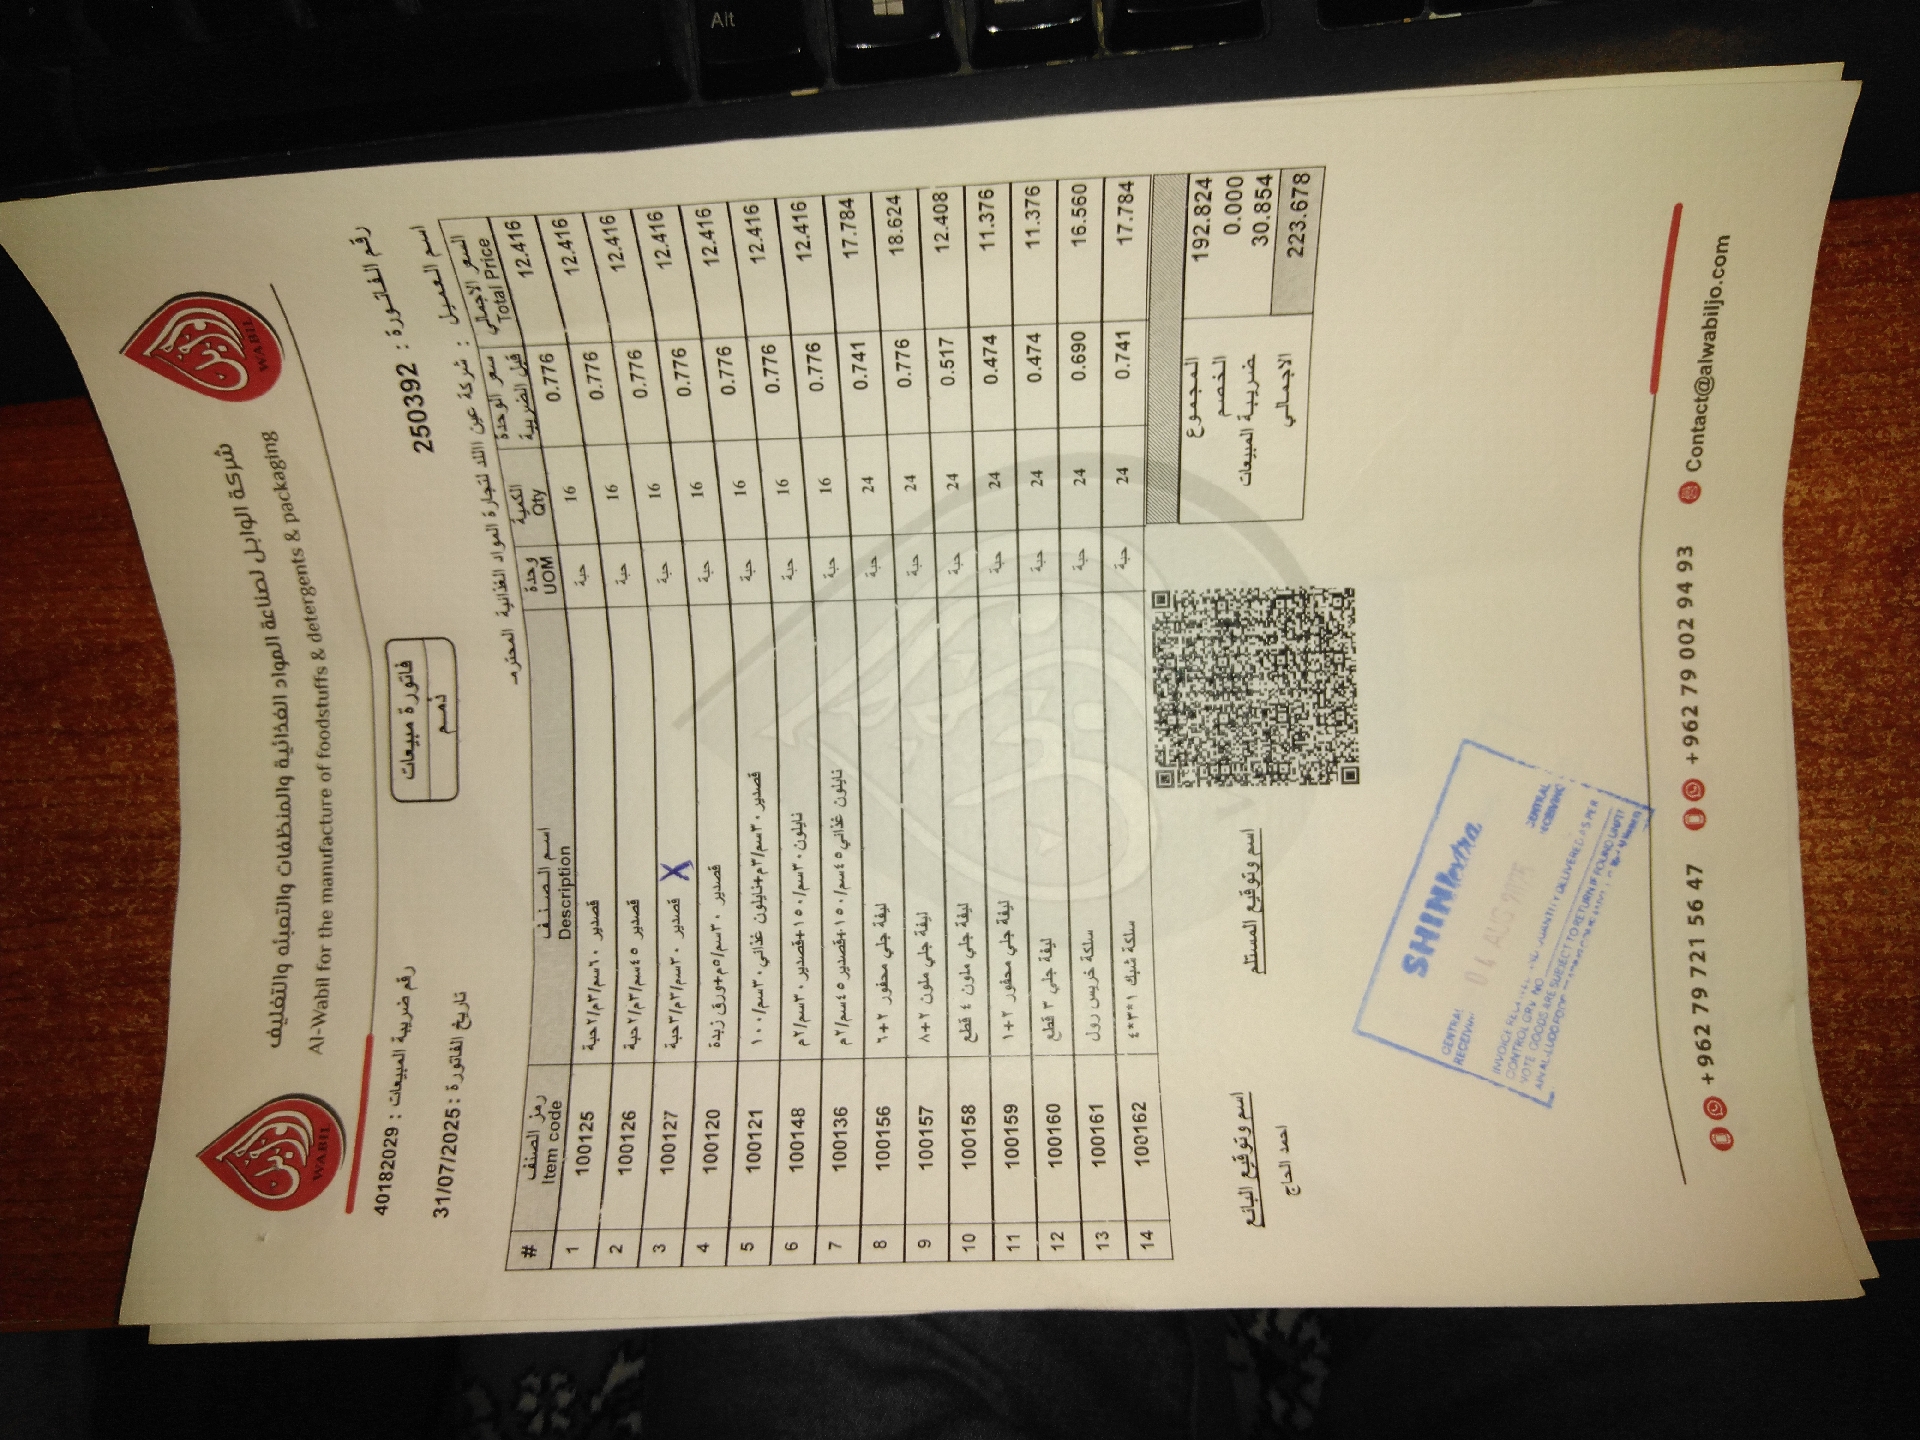 شركة الوابل لصناعة المواد الغذائية والمنظفات والتعبئه والتغليف
Al-Wabil for the manufacture of foodstuffs & detergents & packaging
WABIL
WABIL
رقم الفاتورة : 250392
فاتورة مبيعات
ذمم
رقم ضريبة المبيعات : 40182029
تاريخ الفاتورة : 31/07/2025
اسم العميل : شركة عين اللد لتجارة المواد الغذائية المحترم
# رمز الصنف اسم الصنف وحدة الكمية سعر الوحدة قبل الضريبة السعر الاجمالي
Item code Description UOM Qty Total Price
1 100125 قصدير ٦٠سم/٣م/٢حبة حبة 16 0.776 12.416
2 100126 قصدير ٤٥سم/٣م/٢حبة حبة 16 0.776 12.416
3 100127 قصدير ٣٠سم/٣م/٣حبة X حبة 16 0.776 12.416
4 100120 قصدير ٣٠سم/٥م+ورق زبدة حبة 16 0.776 12.416
5 100121 قصدير ٣٠سم/٣م+نايلون غذائي ٣٠سم/١٠٠ حبة 16 0.776 12.416
6 100148 نايلون ٣٠سم/١٥٠+قصدير ٣٠سم/٢م حبة 16 0.776 12.416
7 100136 نايلون غذائي٤٥سم/١٥٠+قصدير ٤٥سم/٢م حبة 16 0.776 12.416
8 100156 ليفة جلي محفور ٢+٦ حبة 24 0.741 17.784
9 100157 ليفة جلي ملون ٢+٨ حبة 24 0.776 18.624
10 100158 ليفة جلي ملون ٤ قطع حبة 24 0.517 12.408
11 100159 ليفة جلي محفور ٢+١ حبة 24 0.474 11.376
12 100160 ليفة جلي ٣ قطع حبة 24 0.474 11.376
13 100161 سلكة خريس رول حبة 24 0.690 16.560
14 100162 سلكة شبك ١*٣*٤ حبة 24 0.741 17.784
12.416
المجموع 192.824
الخصم 0.000
ضريبة المبيعات 30.854
الاجمالي 223.678
اسم وتوقيع البائع
اسم وتوقيع المستلم
احمد الحاج
SHINI extra
CENTRAL
RECEIVING
04 AUG 2025
CENTRAL
INVOICE
CONTROL GRV NO QUANTITY DELIVERED AS PER
GOODS ARE SUBJECT TO RETURN IF FOUND
+962 79 721 56 47
+962 79 002 94 93
Contact@alwabiljo.com
Alt